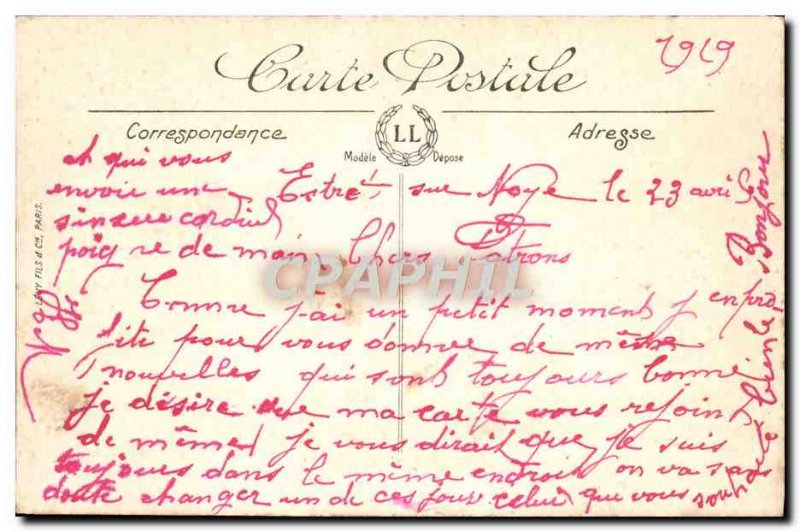 1919
Carte Postale
Correspondance
LL
Modèle Déposé
Adresse
LÉVY FILS & Cie, PARIS.
Estrés sur Noye le 23 avril
Chers Patrons
Comme j'ai un petit moment j en pro-
fite pour vous donner de même
nouvelles qui sont toujours bonne
je désire que ma carte vous rejoint
de même je vous dirait que je suis
toujours dans le même endroit on va sans
doute changer un de ces jour celui qui vous
souhaite bien le Bonjour
et qui vous
envoie une
sincere cordiel
poigne de main
CPAPHIL